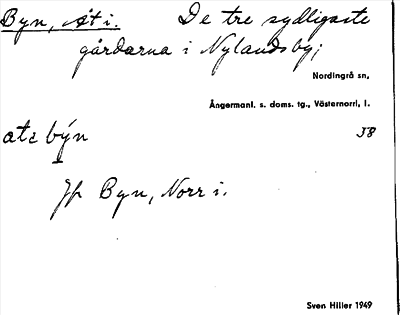 Byn, Åt i. De tre sydligaste
gårdarna i Nylandsby;
Nordingrå sn,
Ångermanl. s. doms. tg., Västernorrl. l.
ata býn J8
Jfr Byn, Norr i.
Sven Hiller 1949